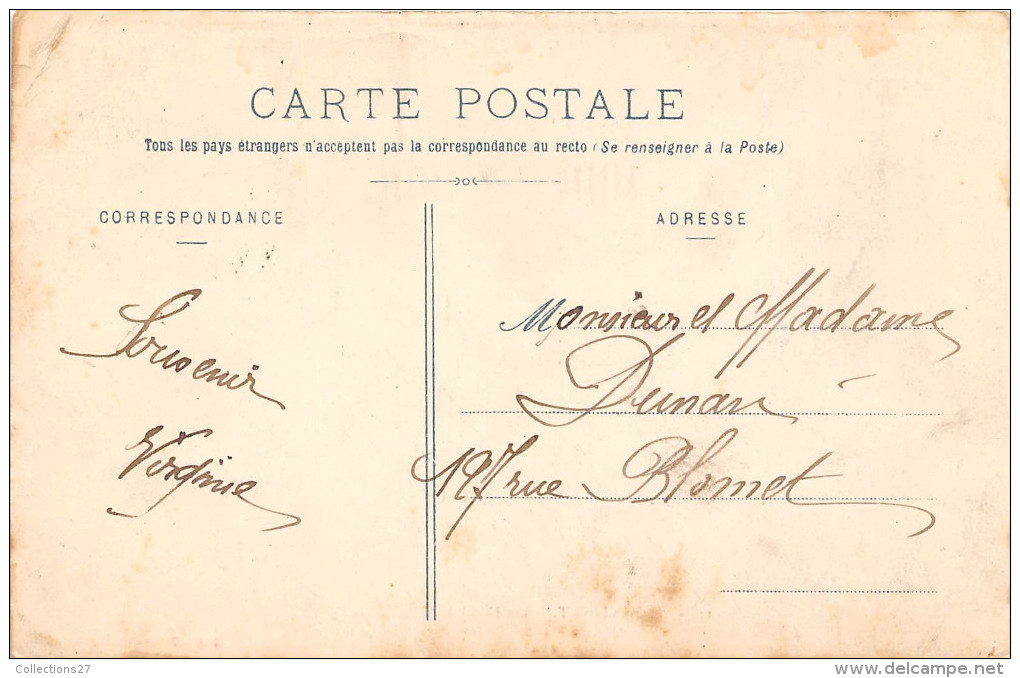 CARTE POSTALE
Tous les pays étrangers n'acceptent pas la correspondance au recto (Se renseigner à la Poste)
CORRESPONDANCE
Souvenir
Virginie
ADRESSE
Monsieur et Madame
Dunan
197 rue Blomet
Collections27
www.delcampe.net